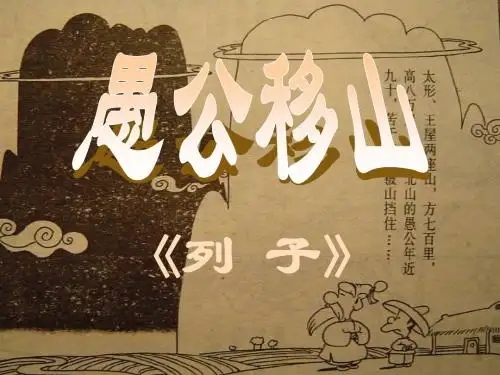 愚公移山
《列 子》
太形、王屋两座山，方七百里，
高八万 北山的愚公年近
九十，苦 山挡住……